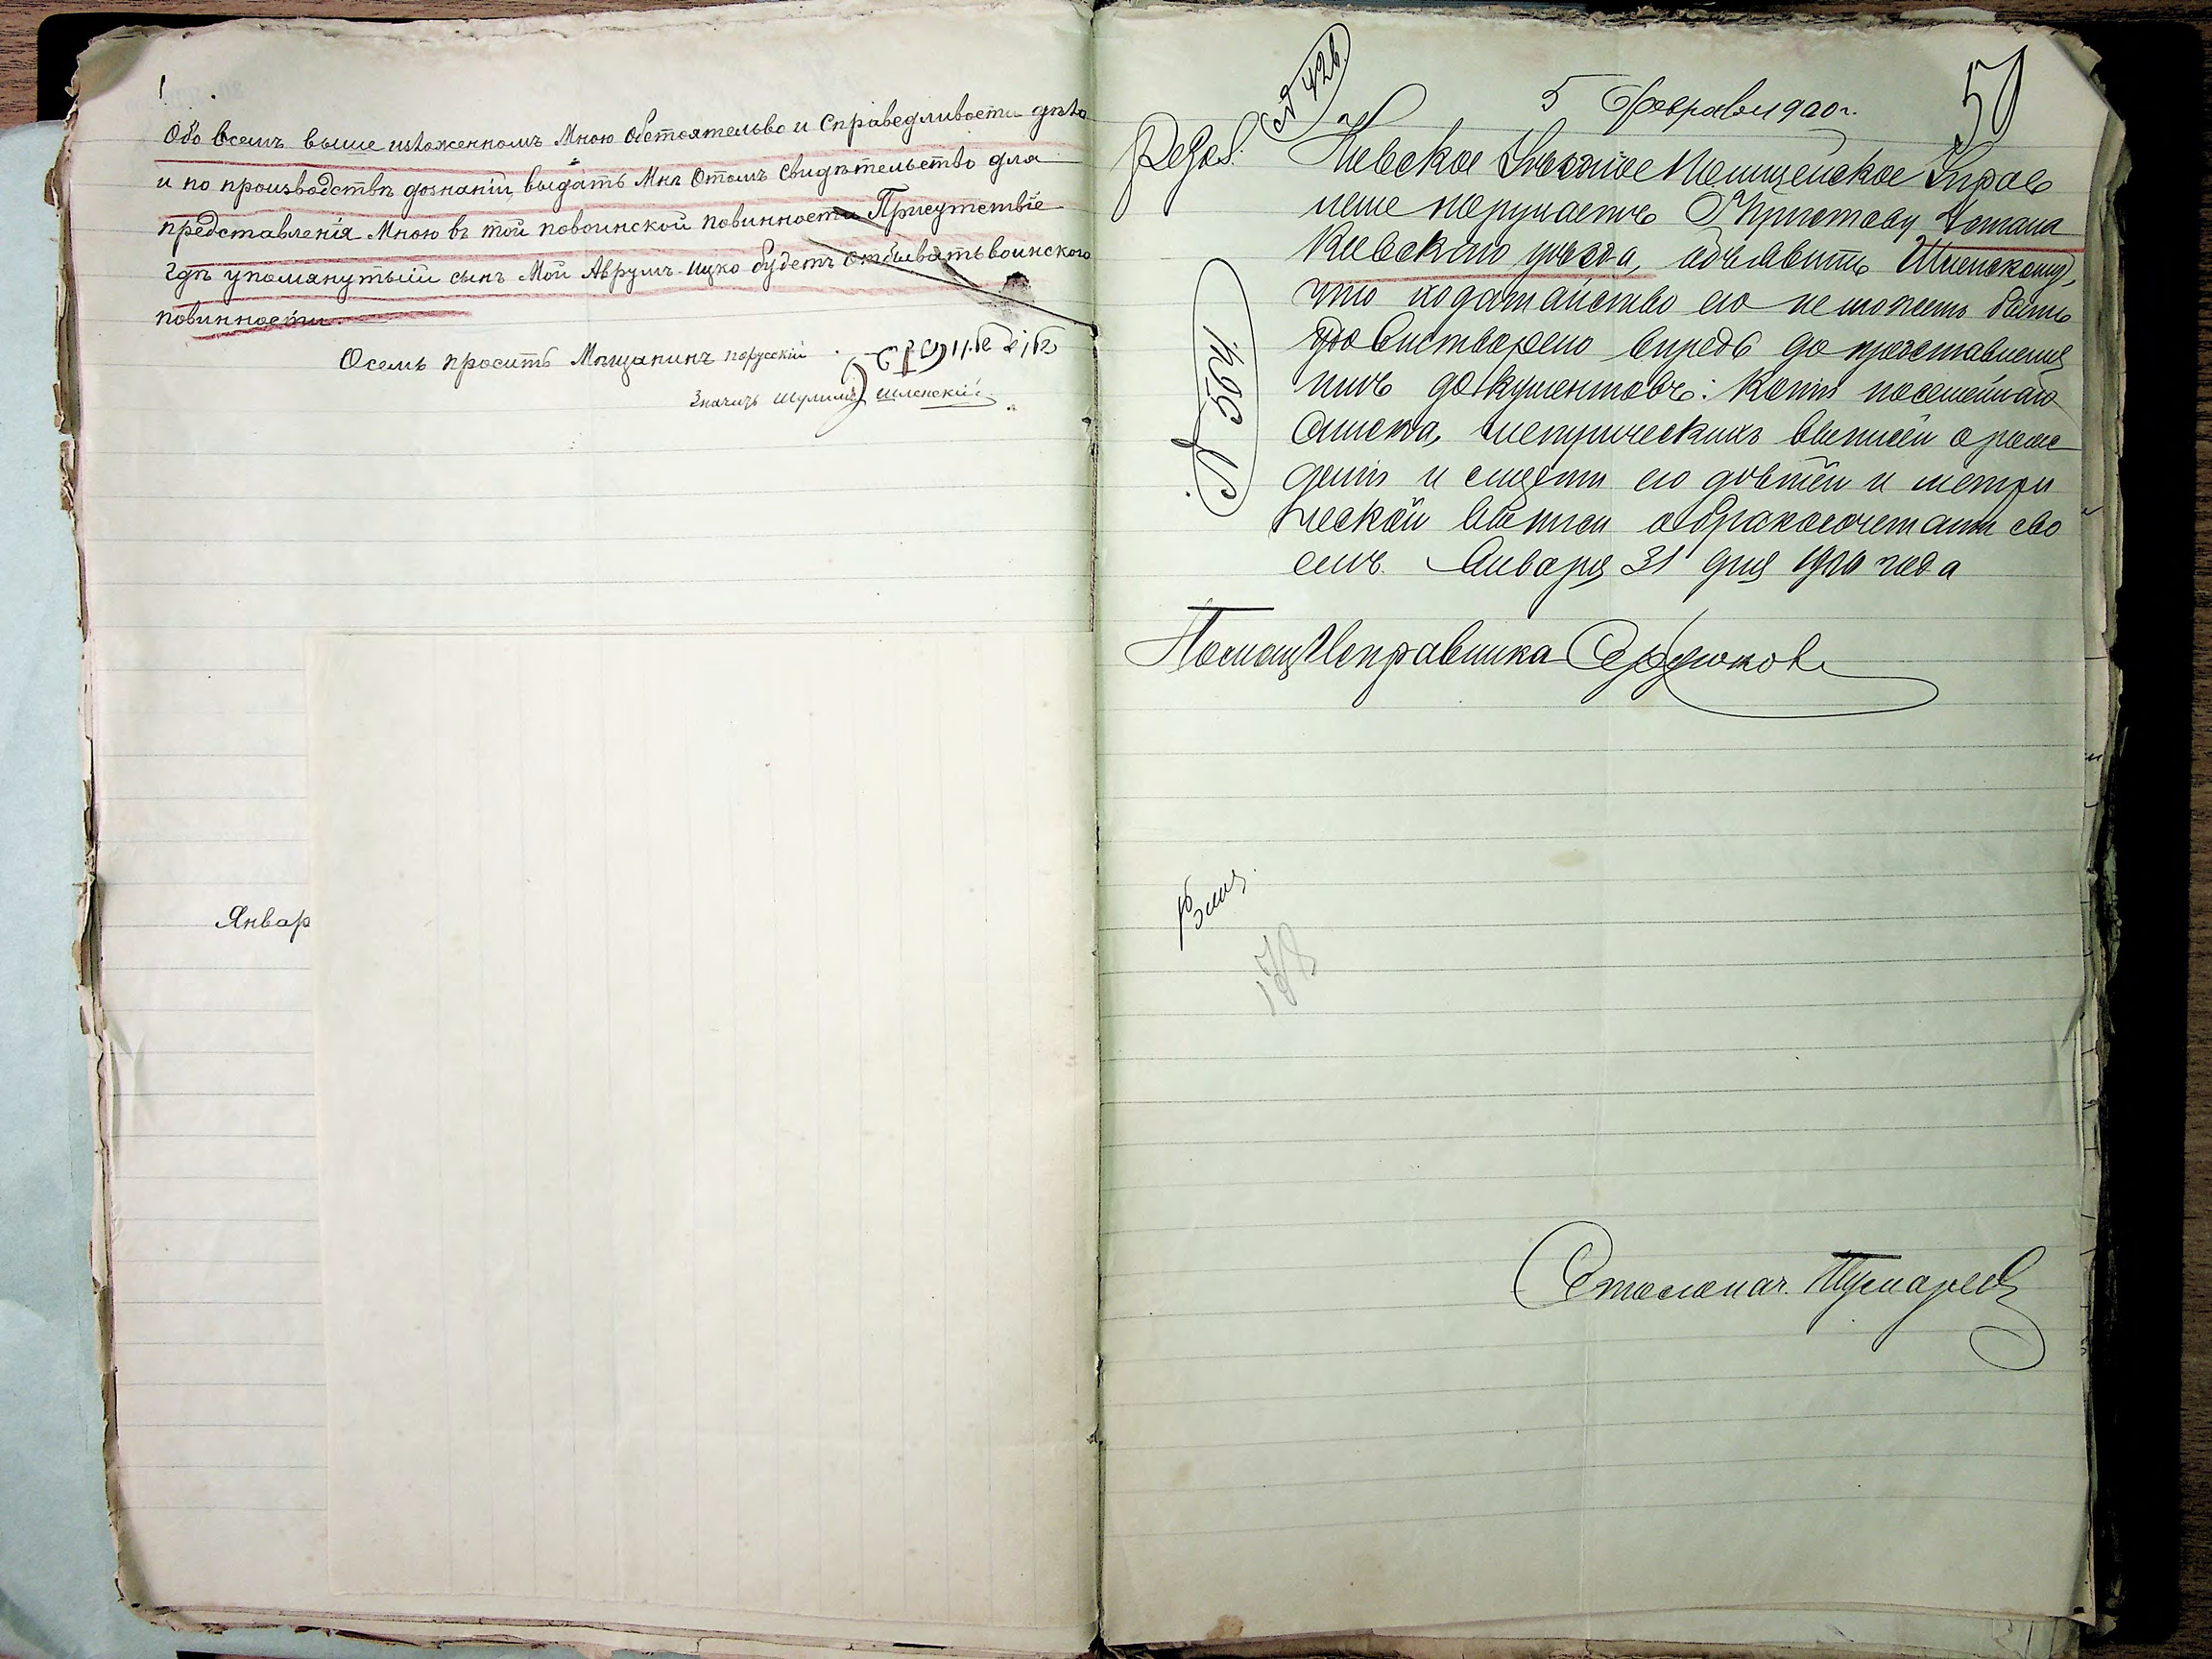 Обо всемъ выше изложенномъ Мною Обстоятельво и Справедливости дѣло
и по производствѣ дознанія, выдать Мнѣ Отомъ Свидѣтельство для
представленія Мною въ той повоинской повинности Присутствіе
гдѣ упомянутый сынъ Мой Аврумъ-Ицко будетъ отбывать воинского
повинности.
Осемъ просить Мещанинъ порусскій
Значитъ Шулимъ Шленскій
Январ
5 Февраля 1900 г. 50
№ 426.
Кіевское Уѣздное Полицейское Управ
леніе поручаетъ Г. Приставу 4 стана
Кіевского уѣзда, объявить Шленскому,
что ходатайство его не можетъ быть
удовлетворено впредь до представленія
имъ документовъ: копіи посемейнаго
списка, метрическихъ выписей о рож
деніи и смерти его дѣтей и метри
ческой выписи о бракосочетаніи сво
емъ. Января 31 дня 1900 года
Помощ Исправника Сердюковъ
Столонач.